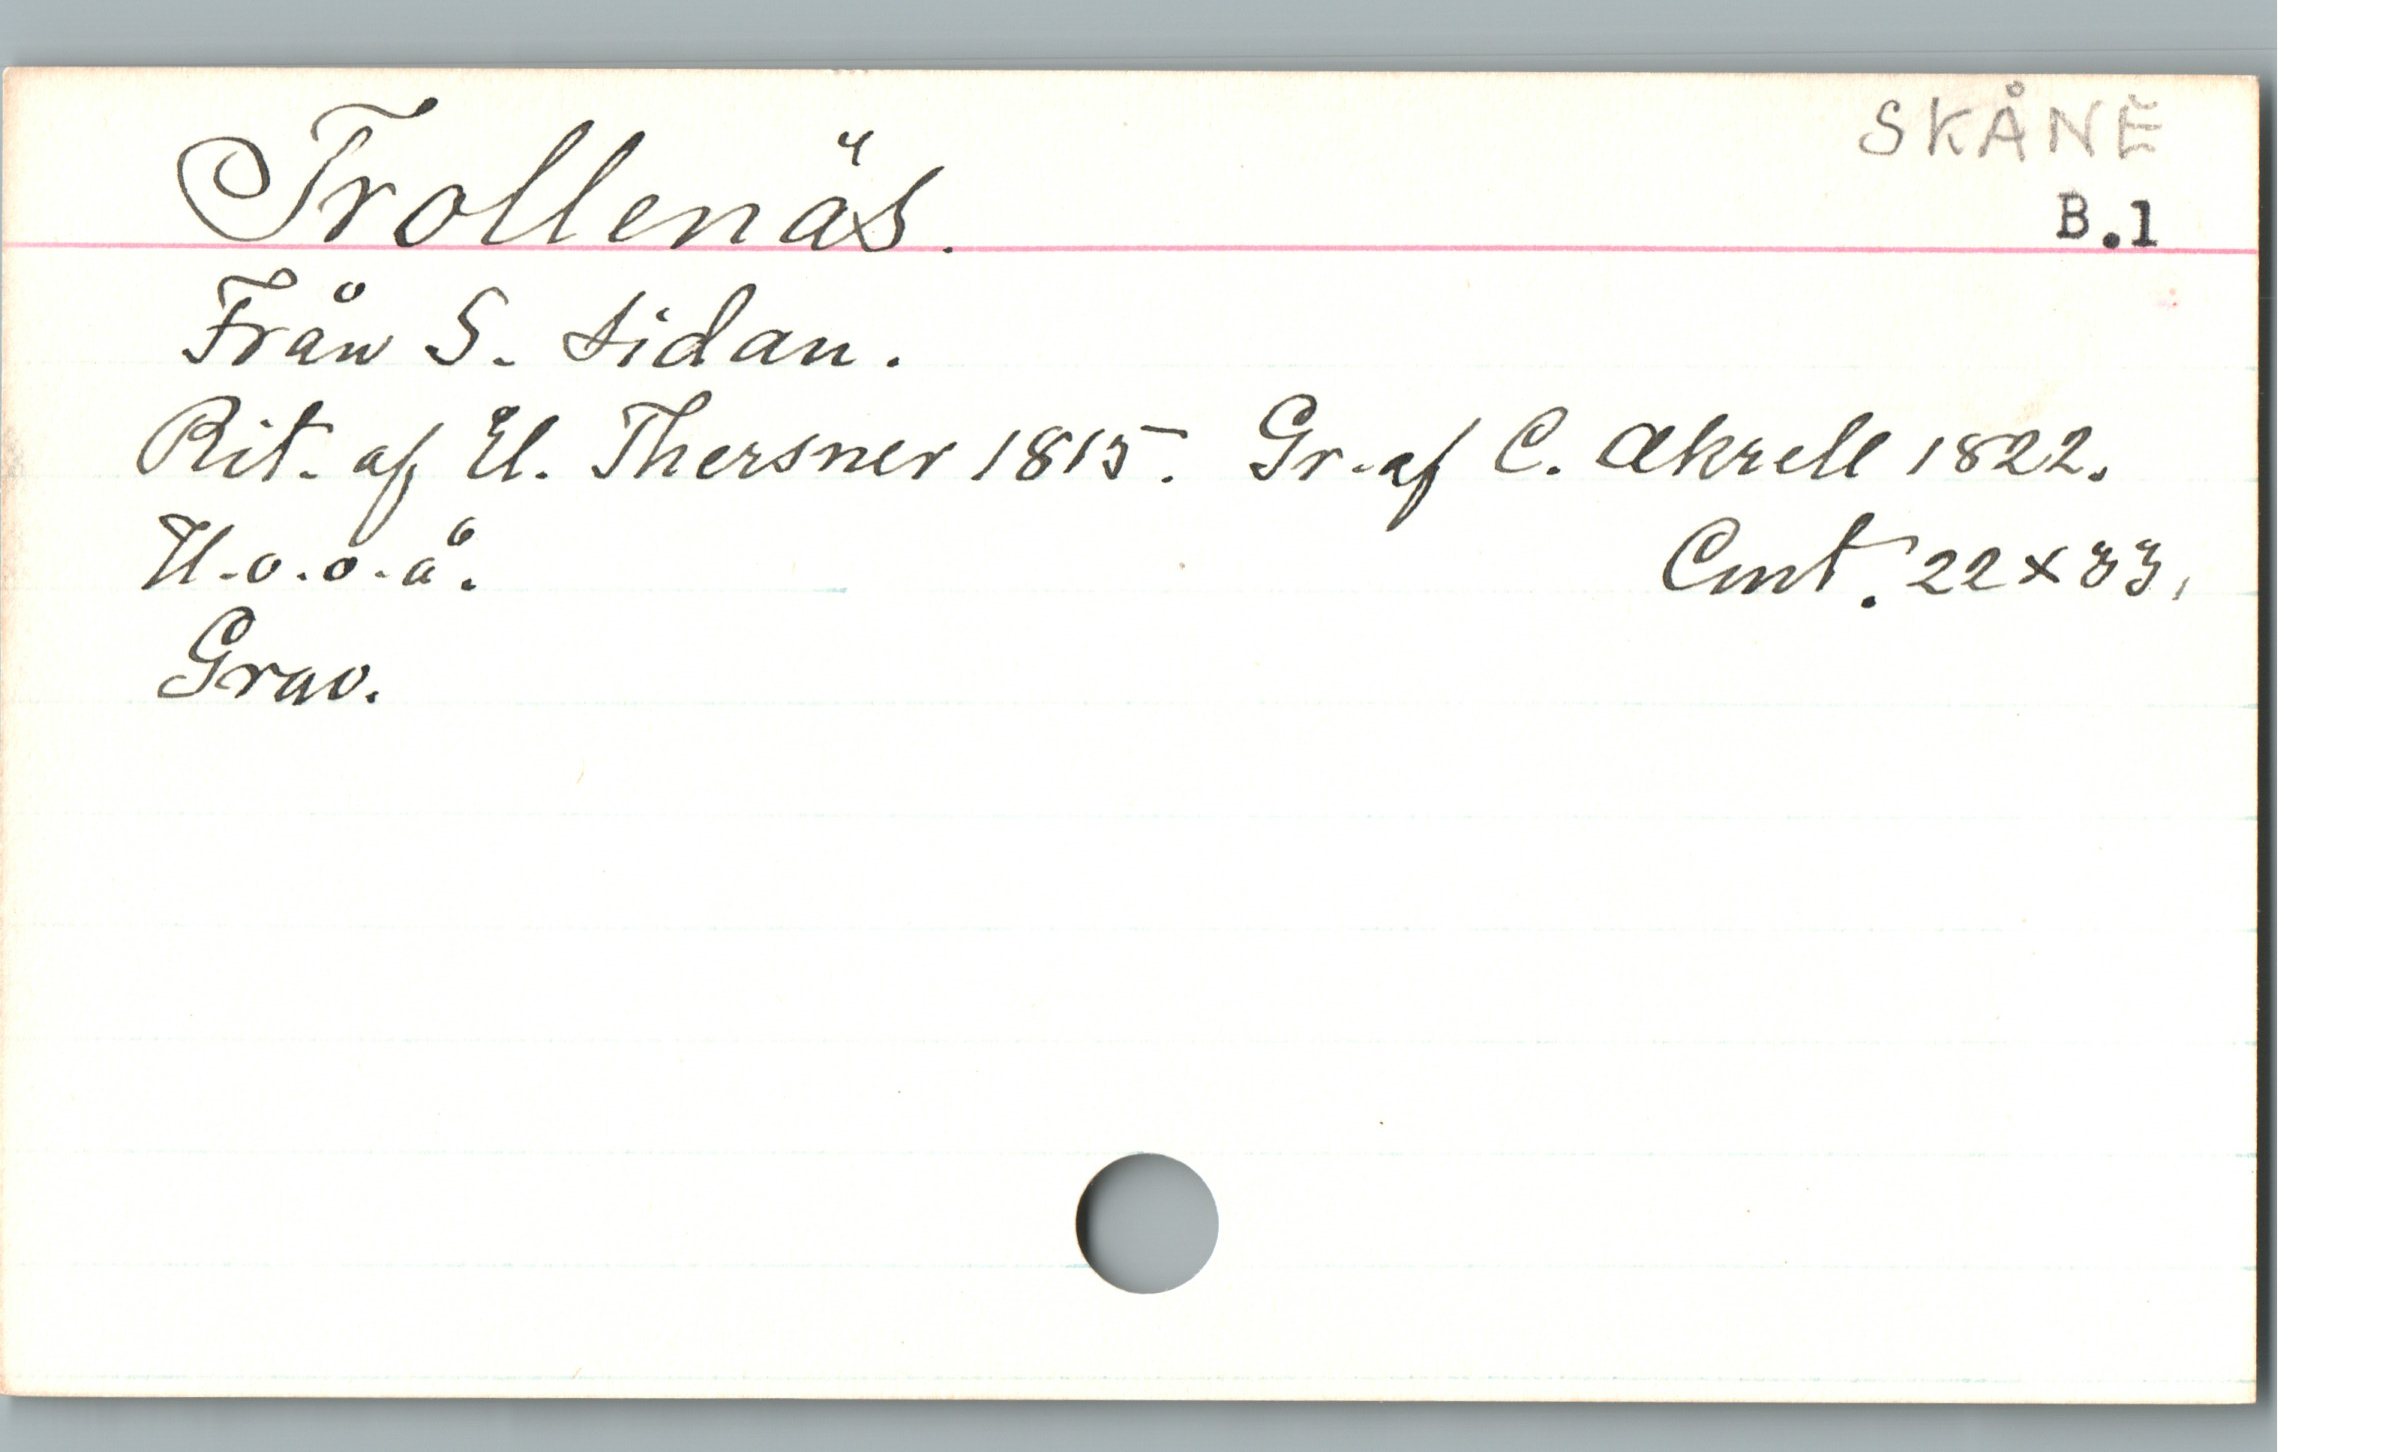 SKÅNE
Trollenäs.
B.1
Från S. sidan.
Rit. af Ul. Thersner 1815. Gr. af C. Akrell 1822.
U.o.o.å. Cmt. 22 x 33.
Grav.